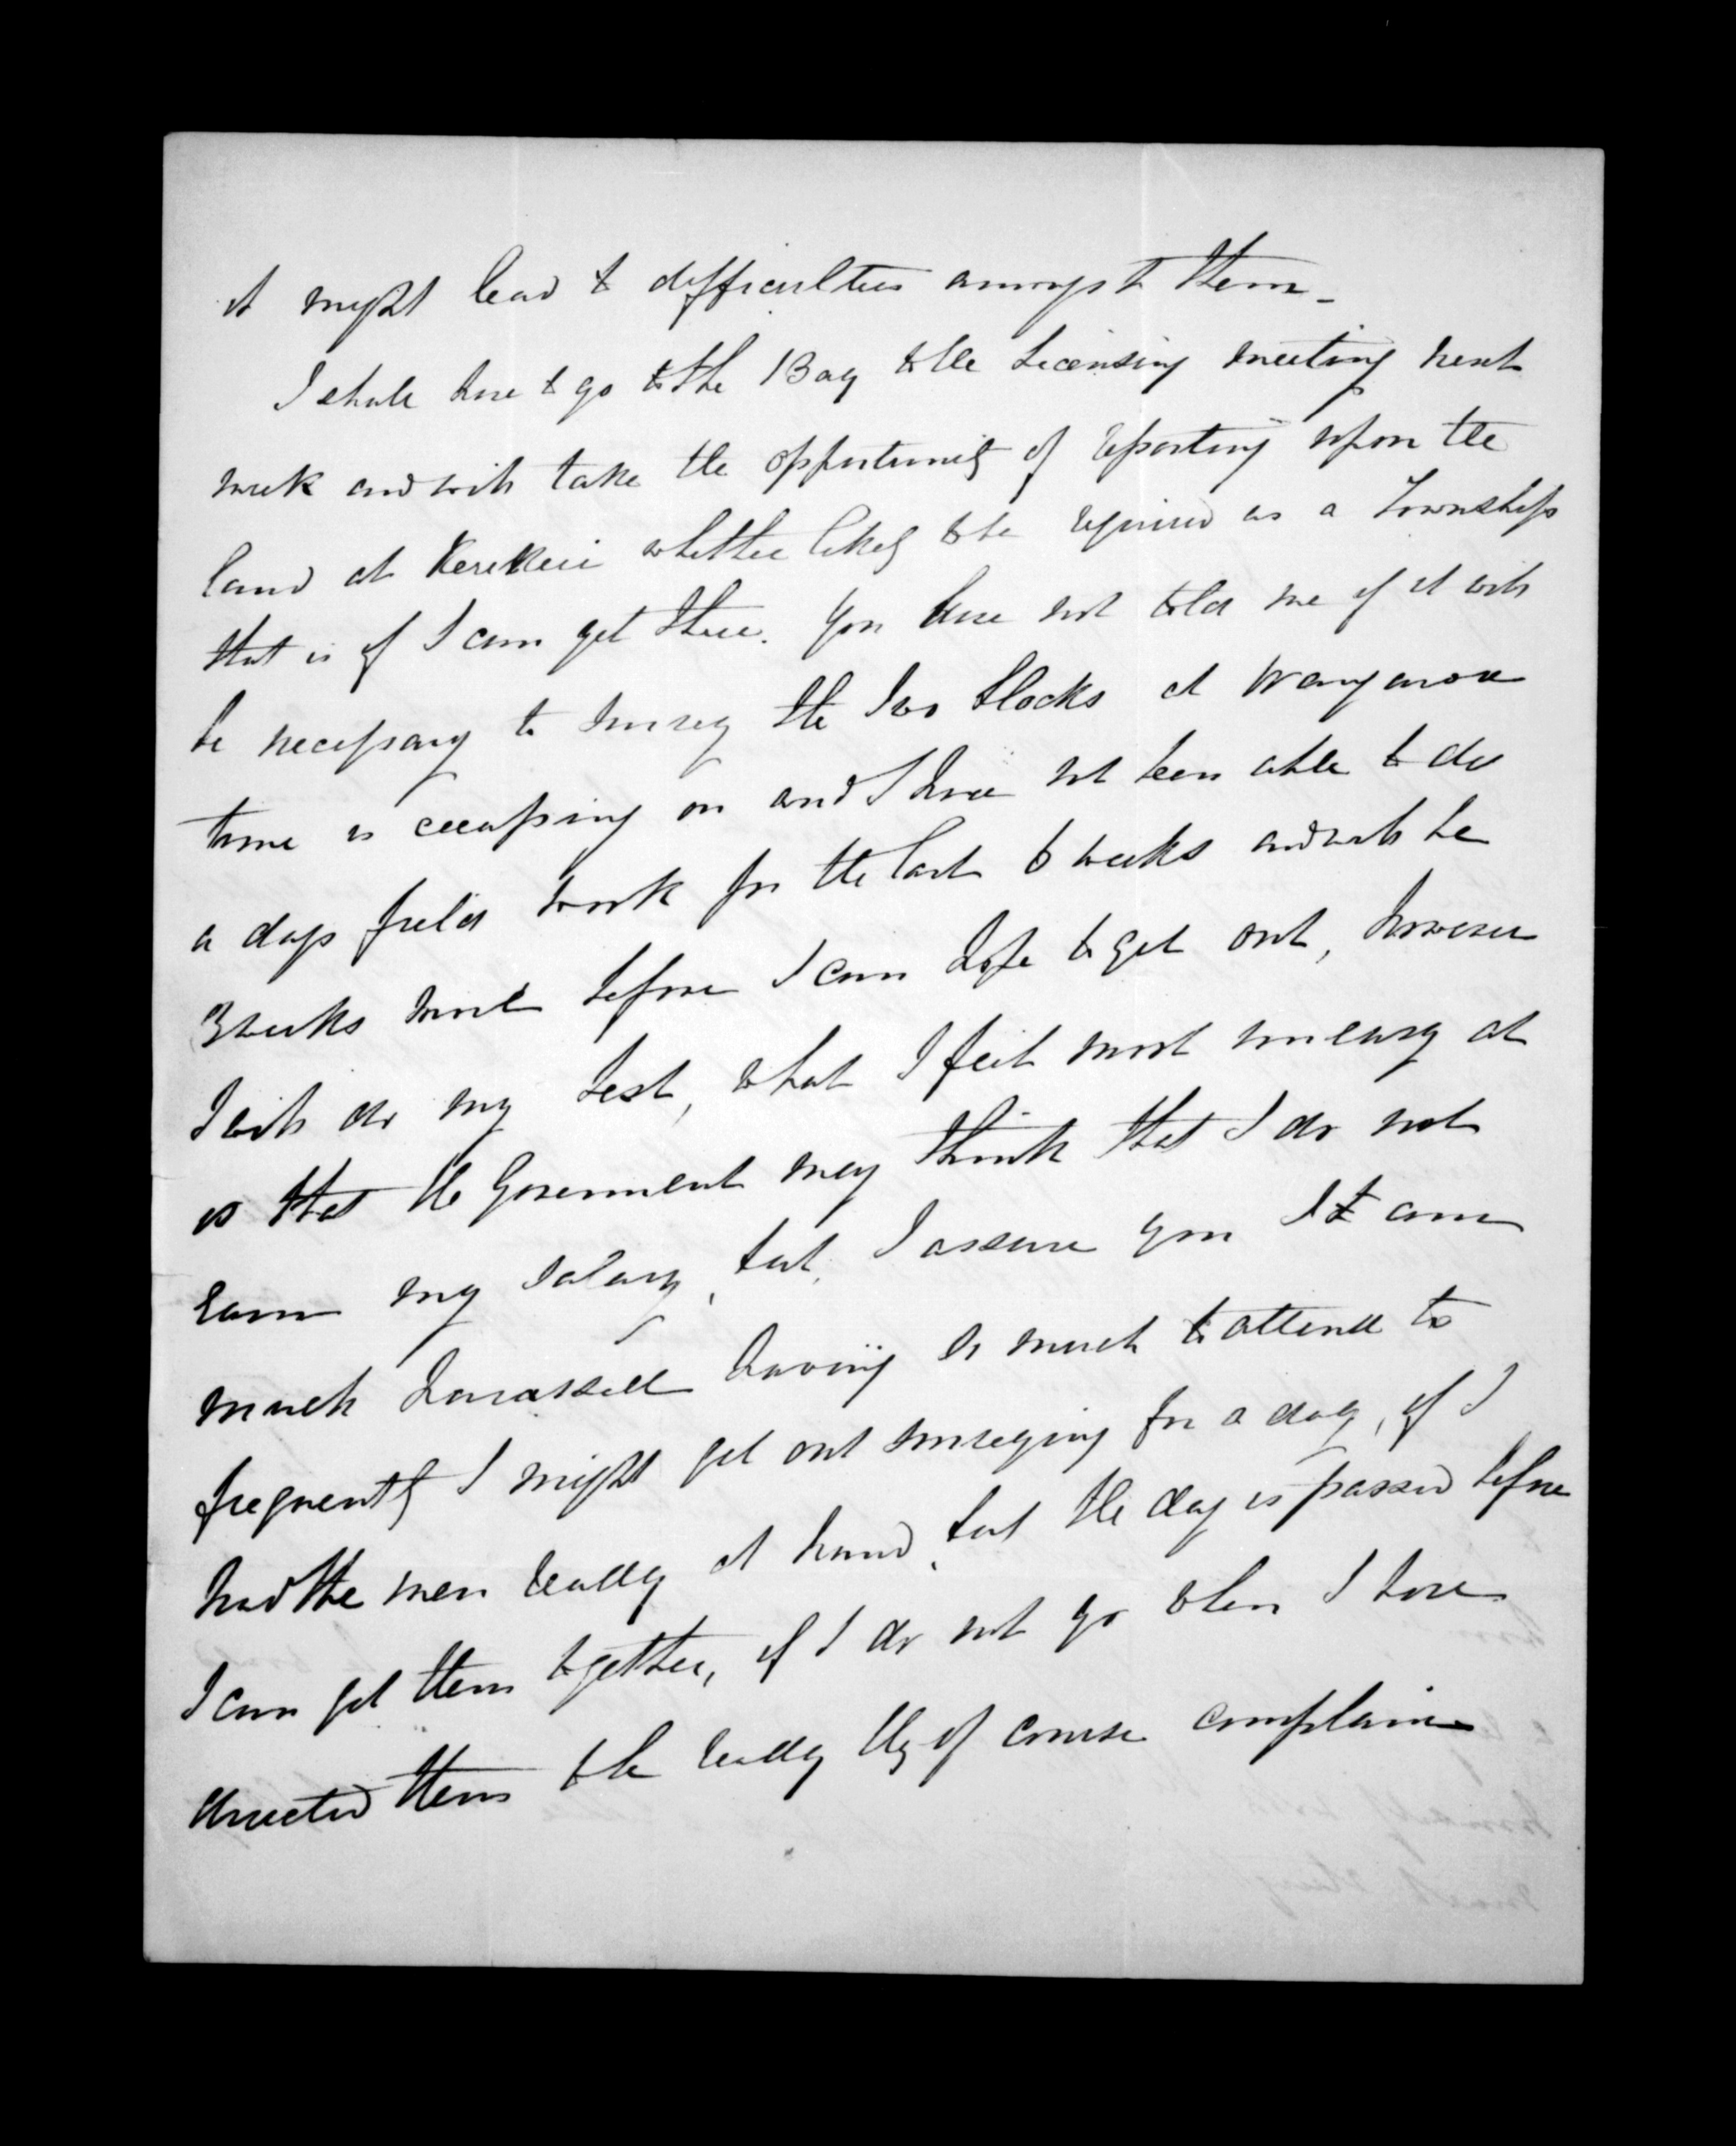 it might lead to difficulties amongst them_
I shall have to go to the Bay to the Licensing meeting next
week and will take the opportunity of reporting upon the
land at Kerikeri whether likely to be required as a Township
that is if I can get there. You have not told me if it will
be necessary to survey the two blocks at Wangaroa
time is creeping on and I have not been able to do
a days field work for the last 6 weeks and will be
3 weeks more before I can hope to get out, however
I will do my best, what I feel most uneasy at
is that the Government may think that I do not
earn my salary, but, I assure you I am
much harassed having so much to attend to
frequently I might get out surveying for a day, if I
had the men ready at hand, but the day is passed before
I can get them together, if I do not go when I have
directed them to be ready they of course complain